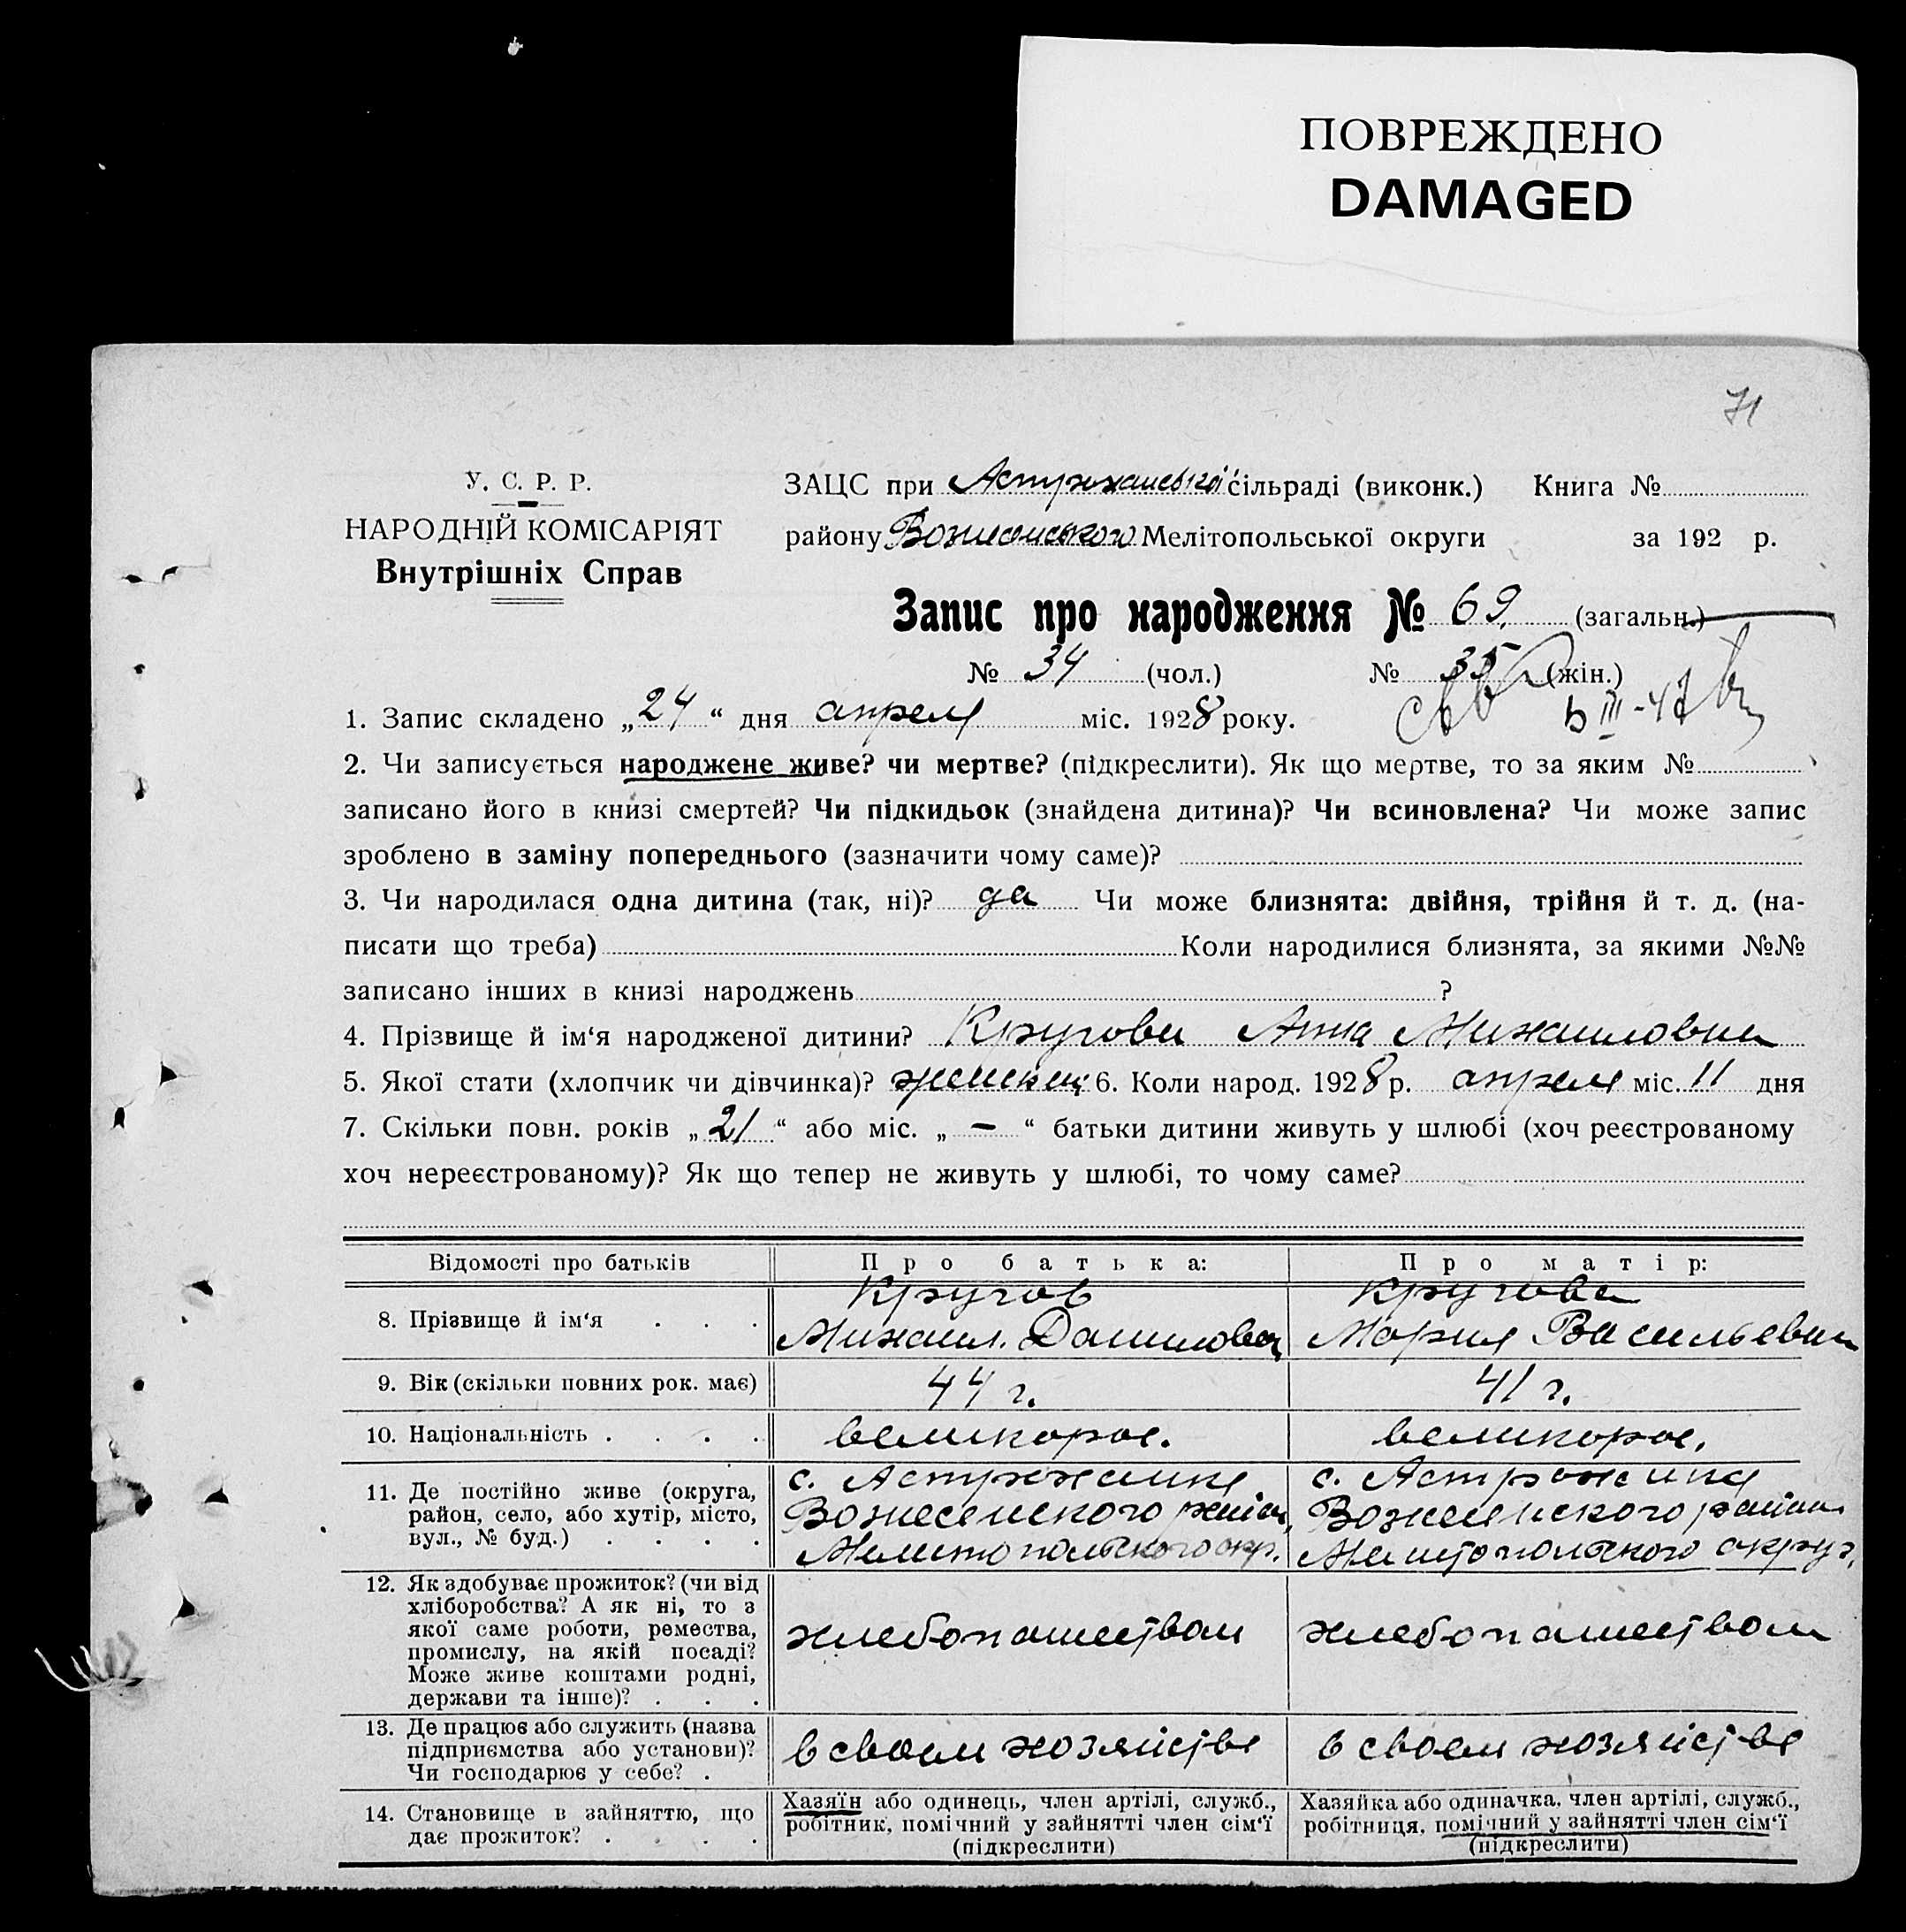 ПОВРЕЖДЕНО
DAMAGED
71
У. С. Р. Р.
НАРОДНІЙ КОМІСАРІЯТ
Внутрішніх Справ
ЗАЦС при Астраханській сільраді (виконк.) Книга №
району Вознесенського Мелітопольської округи за 192 р.
Запис про народження № 69. (загальн.)
№ 34 (чол.) № 35 (жін.)
1. Запис складено „24“ дня апреля міс. 1928 року.
2. Чи записується народжене живе? чи мертве? (підкреслити). Як що мертве, то за яким №
записано його в книзі смертей? Чи підкидьок (знайдена дитина)? Чи всиновлена? Чи може запис
зроблено в заміну попереднього (зазначити чому саме)?
3. Чи народилася одна дитина (так, ні)? да Чи може близнята: двійня, трійня й т. д. (на-
писати що треба) Коли народилися близнята, за якими №№
записано інших в книзі народжень ?
4. Прізвище й ім‘я народженої дитини? Кругова Анна Михайловна
5. Якої стати (хлопчик чи дівчинка)? 6. Коли народ. 1928 р. апреля міс. 11 дня
7. Скільки повн. років „21“ або міс. „ — “ батьки дитини живуть у шлюбі (хоч реєстрованому
хоч нереєстрованому)? Як що тепер не живуть у шлюбі, то чому саме?
Відомості про батьків Про батька: Про матір:
8. Прізвище й ім‘я . . .
Кругов
Михаил Данилович
Кругова
Мария Васильевна
9. Вік (скільки повних рок. має) 44 г. 41 г.
10. Національність . . . . великорос. великорос.
11. Де постійно живе (округа,
район, село, або хутір, місто,
вул., № буд.) . . . .
с. Астраханка
Вознесенского район.
Мелитопольского окр.
с. Астраханка
Вознесенского района
Мелитопольского округ.
12. Як здобуває прожиток? (чи від
хліборобства? А як ні, то з
якої саме роботи, ремества,
промислу, на якій посаді?
Може живе коштами родні,
держави та інше)? . . .
хлебопашеством
хлебопашеством
13. Де працює або служить (назва
підприємства або установи)?
Чи господарює у себе? .
в своем хозяйстве
в своем хозяйстве
14. Становище в зайняттю, що
дає прожиток? . . . .
Хазяїн або одинець, член артілі, служб.,
робітник, помічний у зайнятті член сім‘ї
(підкреслити)
Хазяйка або одиначка, член артілі, служб.,
робітниця, помічний у зайнятті член сім‘ї
(підкреслити)